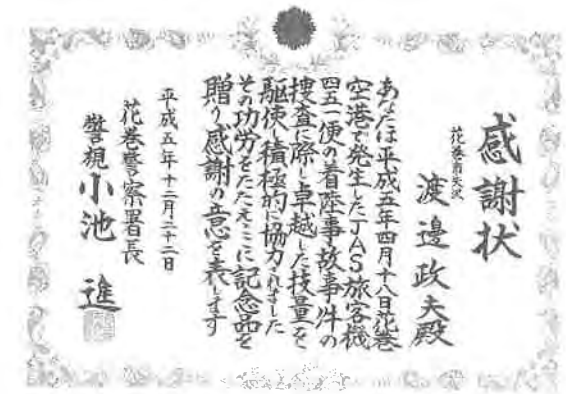 感謝状
花巻市矢沢
渡邊政夫殿
あなたは平成五年四月十八日花巻
空港で発生したJAS旅客機
四五一便の着陸事故事件の
捜査に際し卓越した技量を
駆使し積極的に協力されました
その功労をたたえここに記念品を
贈り感謝の意を表します
平成五年十二月二十二日
花巻警察署長
警視小池進